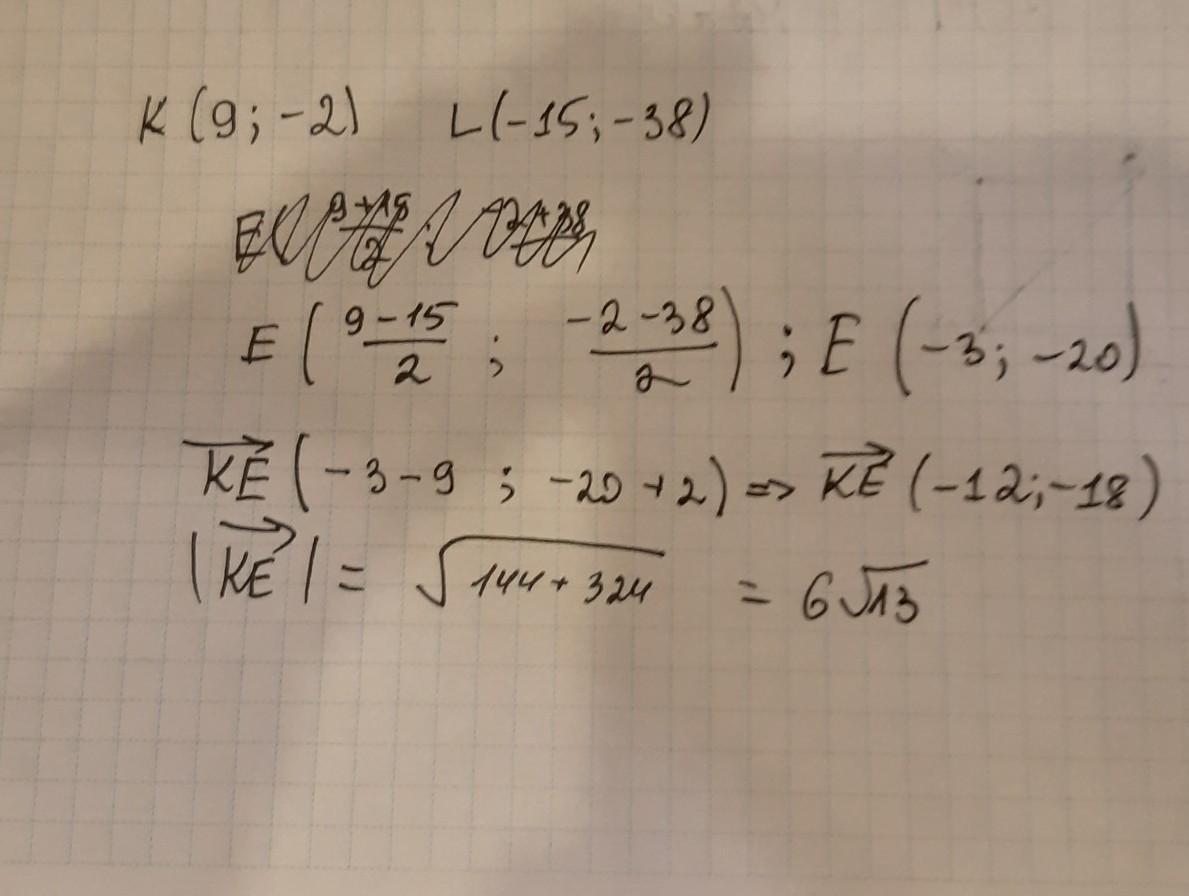 K (9; -2) L(-15; -38)
E ( (9-15)/2 ; (-2-38)/2 ) ; E (-3; -20)
→KE (-3-9 ; -20+2) => →KE (-12; -18)
|→KE| = √(144+324) = 6√13